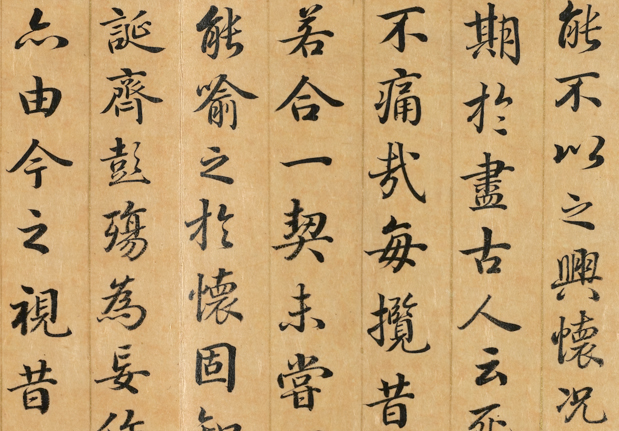 能不以之興懷况
期於盡古人云死
不痛哉每攬昔
若合一契未嘗
能喻之於懷固知
誕齊彭殤為妄作
亦由今之視昔